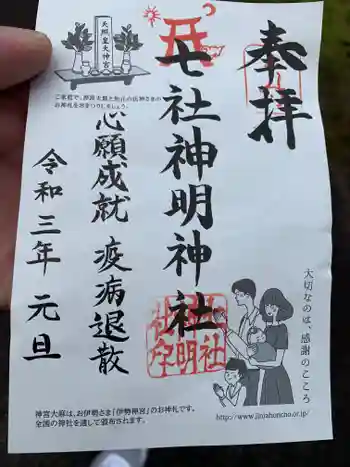 奉拝
七社神明神社
心願成就 疫病退散
令和三年 元旦
天照皇大神宮
ご家庭で、神宮大麻と地元の氏神さまの
お神札をおまつりしましょう。
大切なのは、感謝のこころ
http://www.jinjahoncho.or.jp/
神宮大麻は、お伊勢さま「伊勢神宮」のお神札です。
全国の神社を通して頒布されます。